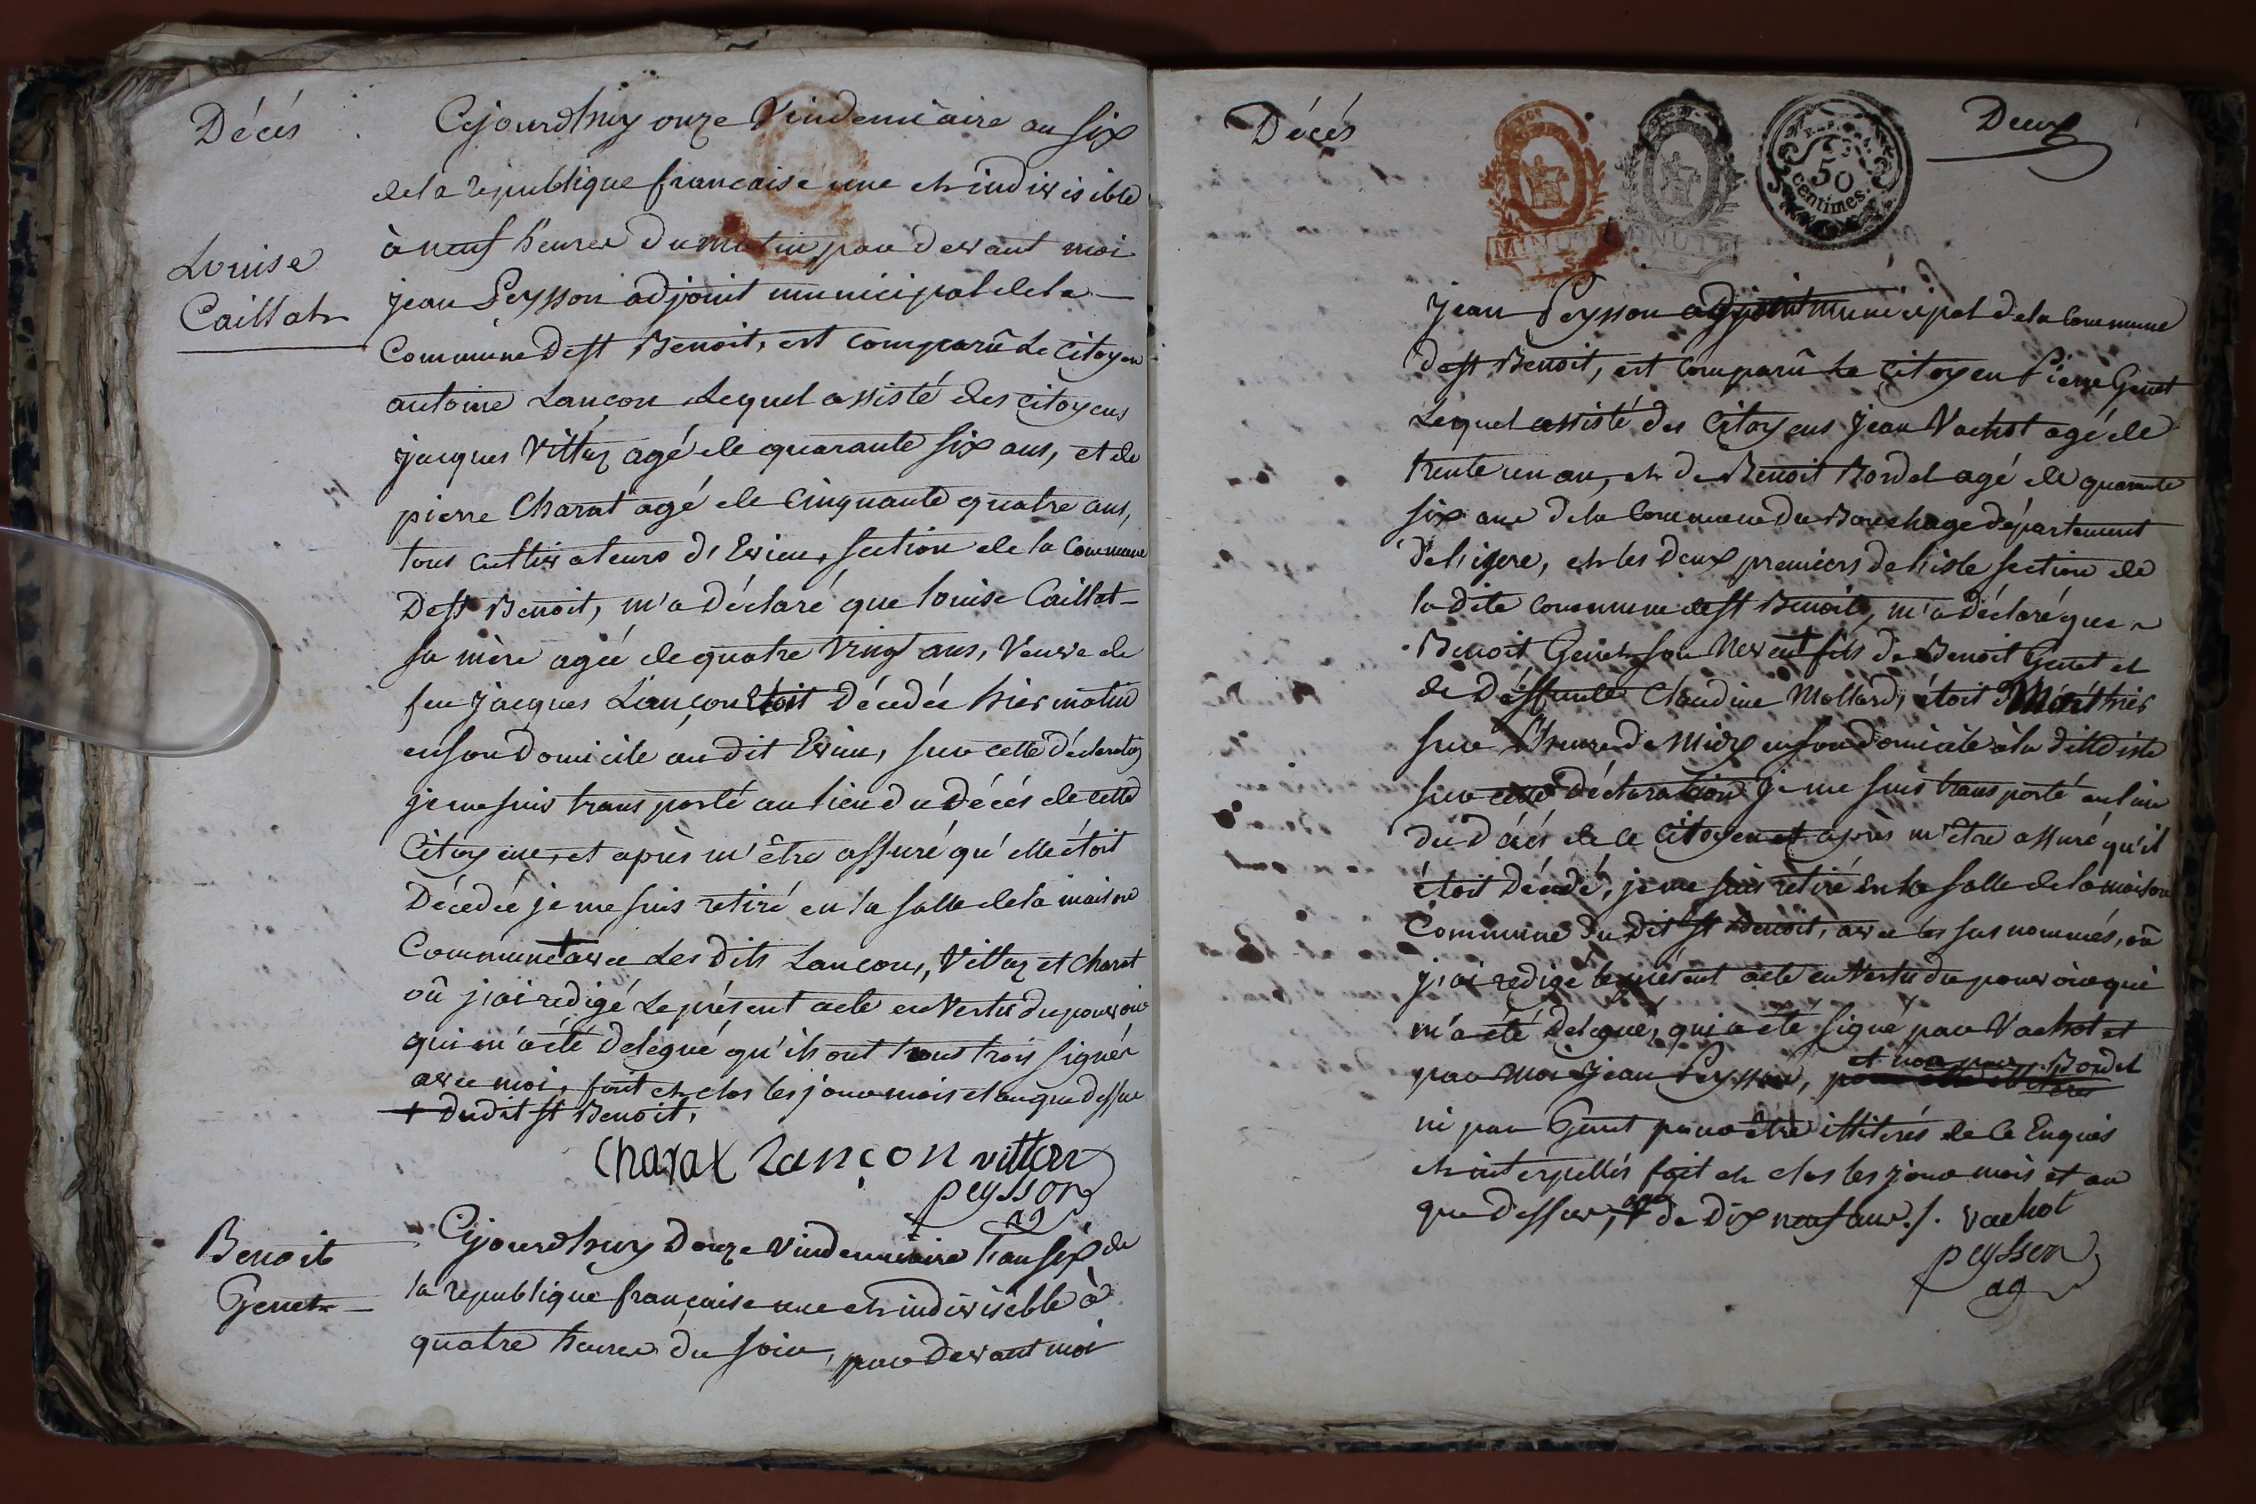 Décés
Louise
Caillat
Cejourdhuy onze Vindemiaire an six
de la republique francaise une et indivisible
à neuf heures du matin, par devant moi
jean Peysson adjoint municipal de la
Commune de st Benoit, est comparû Le Citoyen
antoine Lançon Lequel assisté des citoyens
jacques Vittoz agé de quarante six ans, et de
pierre Charat agé de Cinquante quatre ans,
tous cultivateurs d'Evieu, section de la Commune
De st Benoit, m'a déclaré que louise Caillat
sa mère agée de quatre vingt ans, veuve de
feu jacques Lançon étoit Décedée hier matin
en son domicile au dit Evieu, sur cette déclaration
je me suis transporté au lieu du décés de cette
Citoyene, et après m'être assuré qu'elle étoit
Décedée je me suis retiré en la salle de la maison
Commune + avec Les dits Lancon, Vittoz et Charat
où j'ai redigé Le présent acte en vertu du pouvoir
qui m'a été delegué qu'ils ont tous trois signés
avec moi, fait et clos les jour mois et an que dessus
+ du dit st Benoit.
Charat Lançon vittoz
peysson
ag
Benoit
Genet
Cejourdhuy Douze vindemiaire l'an six de
la republique française une et indivisible à
quatre heures du soir, par devant moi
Décés
Deux
MINUTE
MINUTE
50
centimes
jean Peysson adjoint municipal de la Commune
de st Benoit, est comparû Le Citoyen Pierre Genet
Lequel assisté des Citoyens jean Vachot agé de
trente un an, et de Benoit Bordel agé de quarante
six ans de la Commune du Bouchage département
de l'isere, et les deux premiers de l'isle section de
la dite commune de st Benoit, m'a déclaré que
Benoit Genet son Neveu + fils de Benoit Genet et
de déffunte Claudine Mollard, étoit Mort hier
sur l'heure de midy en son domicile à la ditte isle
sur cette déclaration je me suis transporté au lieu
du décés de ce Citoyen et après m'être assuré qu'il
étoit décedé, je me suis retiré en la salle de la maison
Commune du dit st Benoit, avec les sus nommés, où
j'ai redigé le présent acte en vertu du pouvoir qui
m'a été delegué, qui a été signé par Vachot et
par moi jean Peysson, et non par Bordel
ni par Genet pour être illiterés de ce Enquis
et interpellés fait et clos les jour mois et an
que dessus, + agé de dix neuf ans ./. vachot
peysson
ag